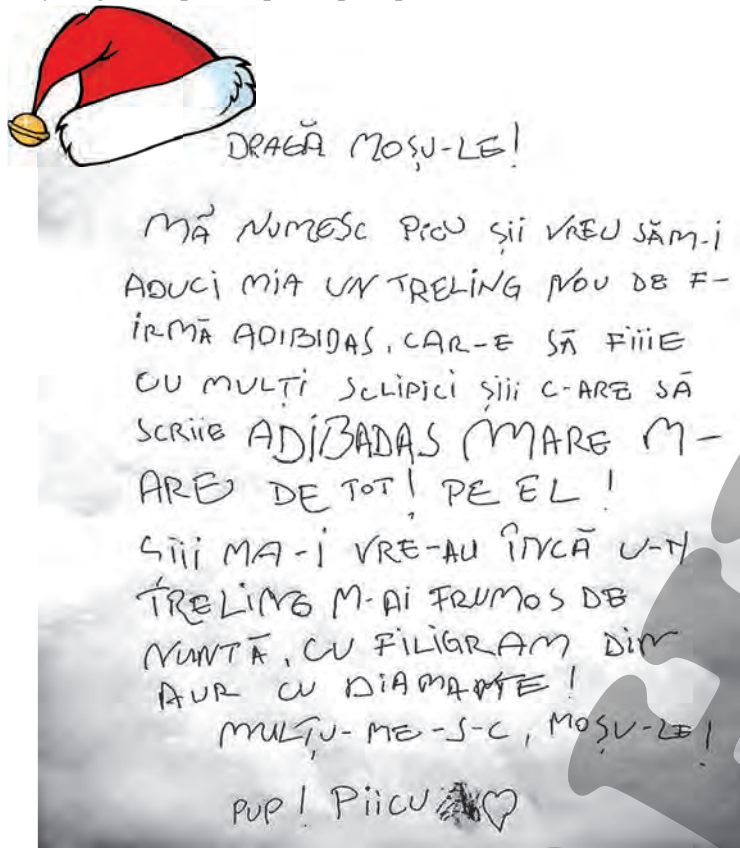 DRAGĂ MOȘU-LE!
MĂ NUMESC PICU ȘII VREU SĂM-I
ADUCI MIA UN TRELING NOU DE F-
IRMĂ ADIBIDAS, CAR-E SĂ FIIIE
CU MULȚI SCLIPICI ȘIII C-ARE SĂ
SCRIIE ADIBADAS MARE M-
ARE DE TOT! PE EL!
ȘIII MA-I VRE-AU ÎNCĂ U-N
TRELING M-AI FRUMOS DE
NUNTĂ, CU FILIGRAM DIN
AUR CU DIAMANTE!
MULȚU-ME-S-C, MOȘU-LE!
PUP! PIICU